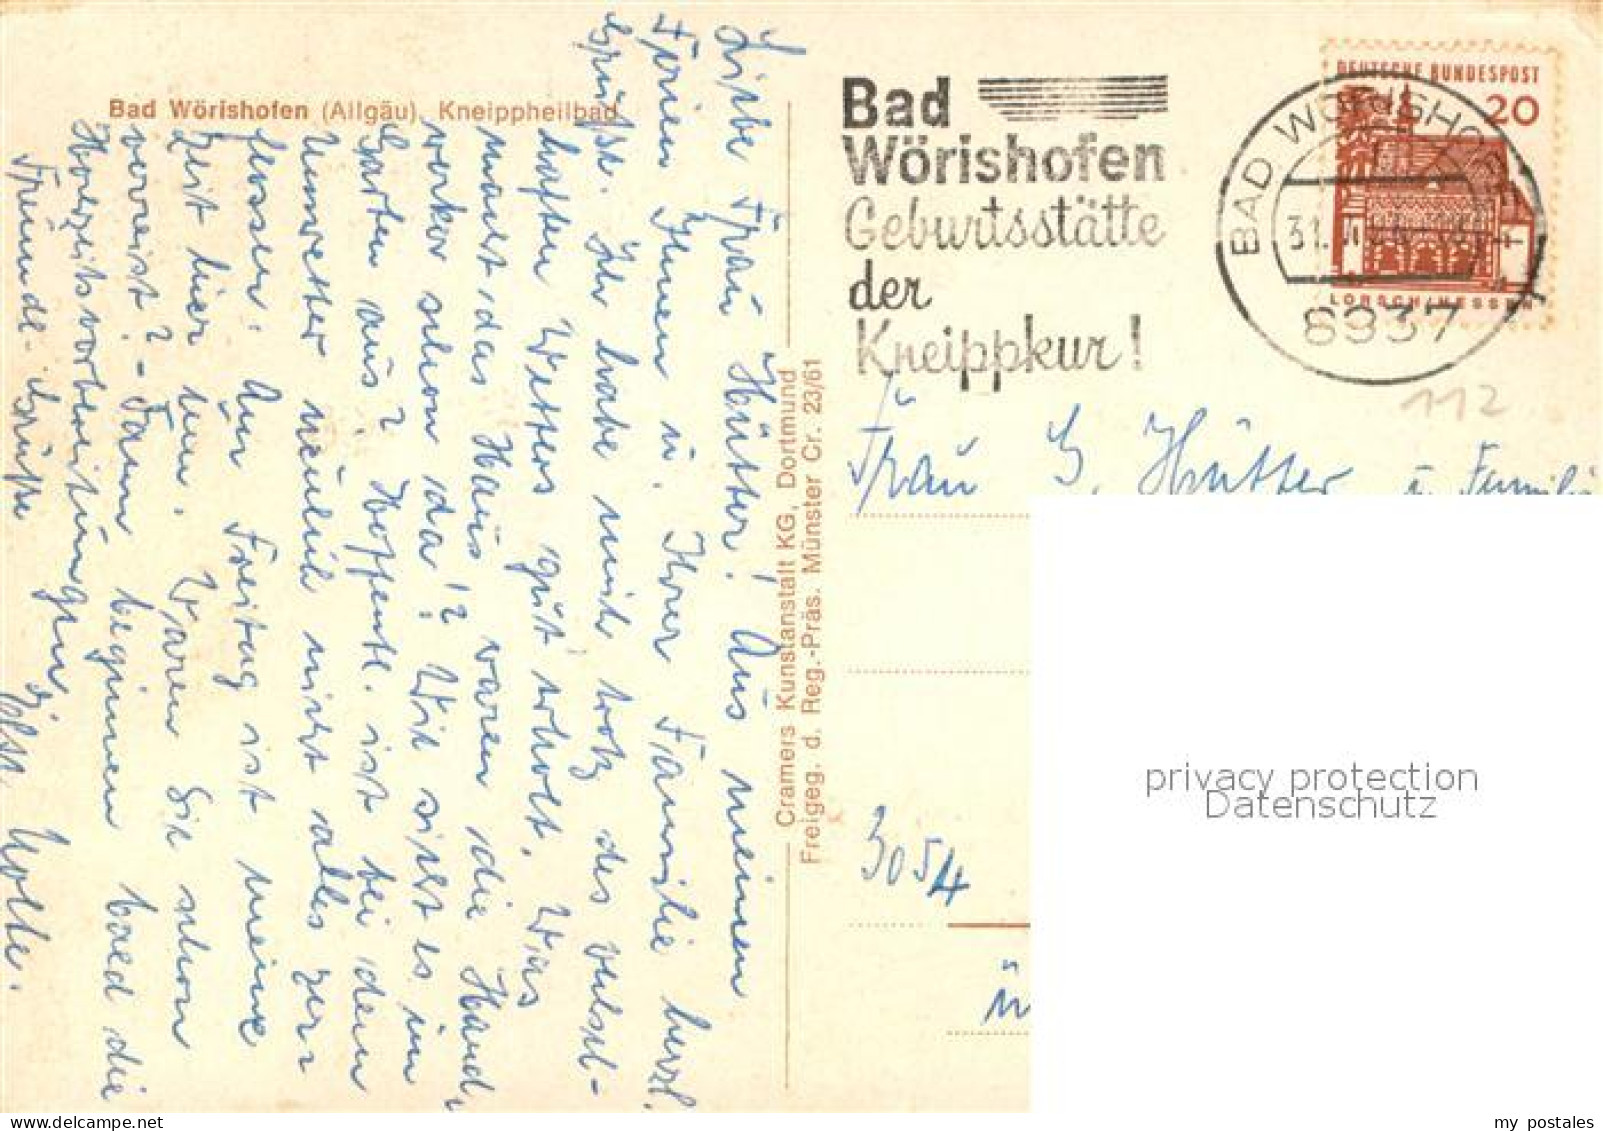 Bad Wörishofen (Allgäu), Kneippheilbad
Liebe Frau Hütter! Aus meinen
Ferien Ihnen u. Ihrer Familie herzl.
Grüße. Ich habe mich trotz des wechsel-
haften Wetters gut erholt. Was
macht das Haus? waren die Hand-
werker schon da? Wie sieht es im
Garten aus? Hoffentl. ist bei dem
Unwetter neulich nicht alles zer-
flossen. Am Freitag ist meine
Zeit hier um. Waren Sie schon
verreist? - Dann beginnen bald die
Hochzeitsvorbereitungen!
Freundl. Grüße
Nolte.
Cramers Kunstanstalt KG, Dortmund
Freigeg. d. Reg.-Präs. Münster Cr. 23/61
Bad
Wörishofen
Geburtsstätte
der
Kneippkur!
DEUTSCHE BUNDESPOST
20
LORSCH/HESSEN
BAD WÖRISHOFEN
31.
8937
112
Frau G. Hütter u. Famili
3054
privacy protection
Datenschutz
my postales